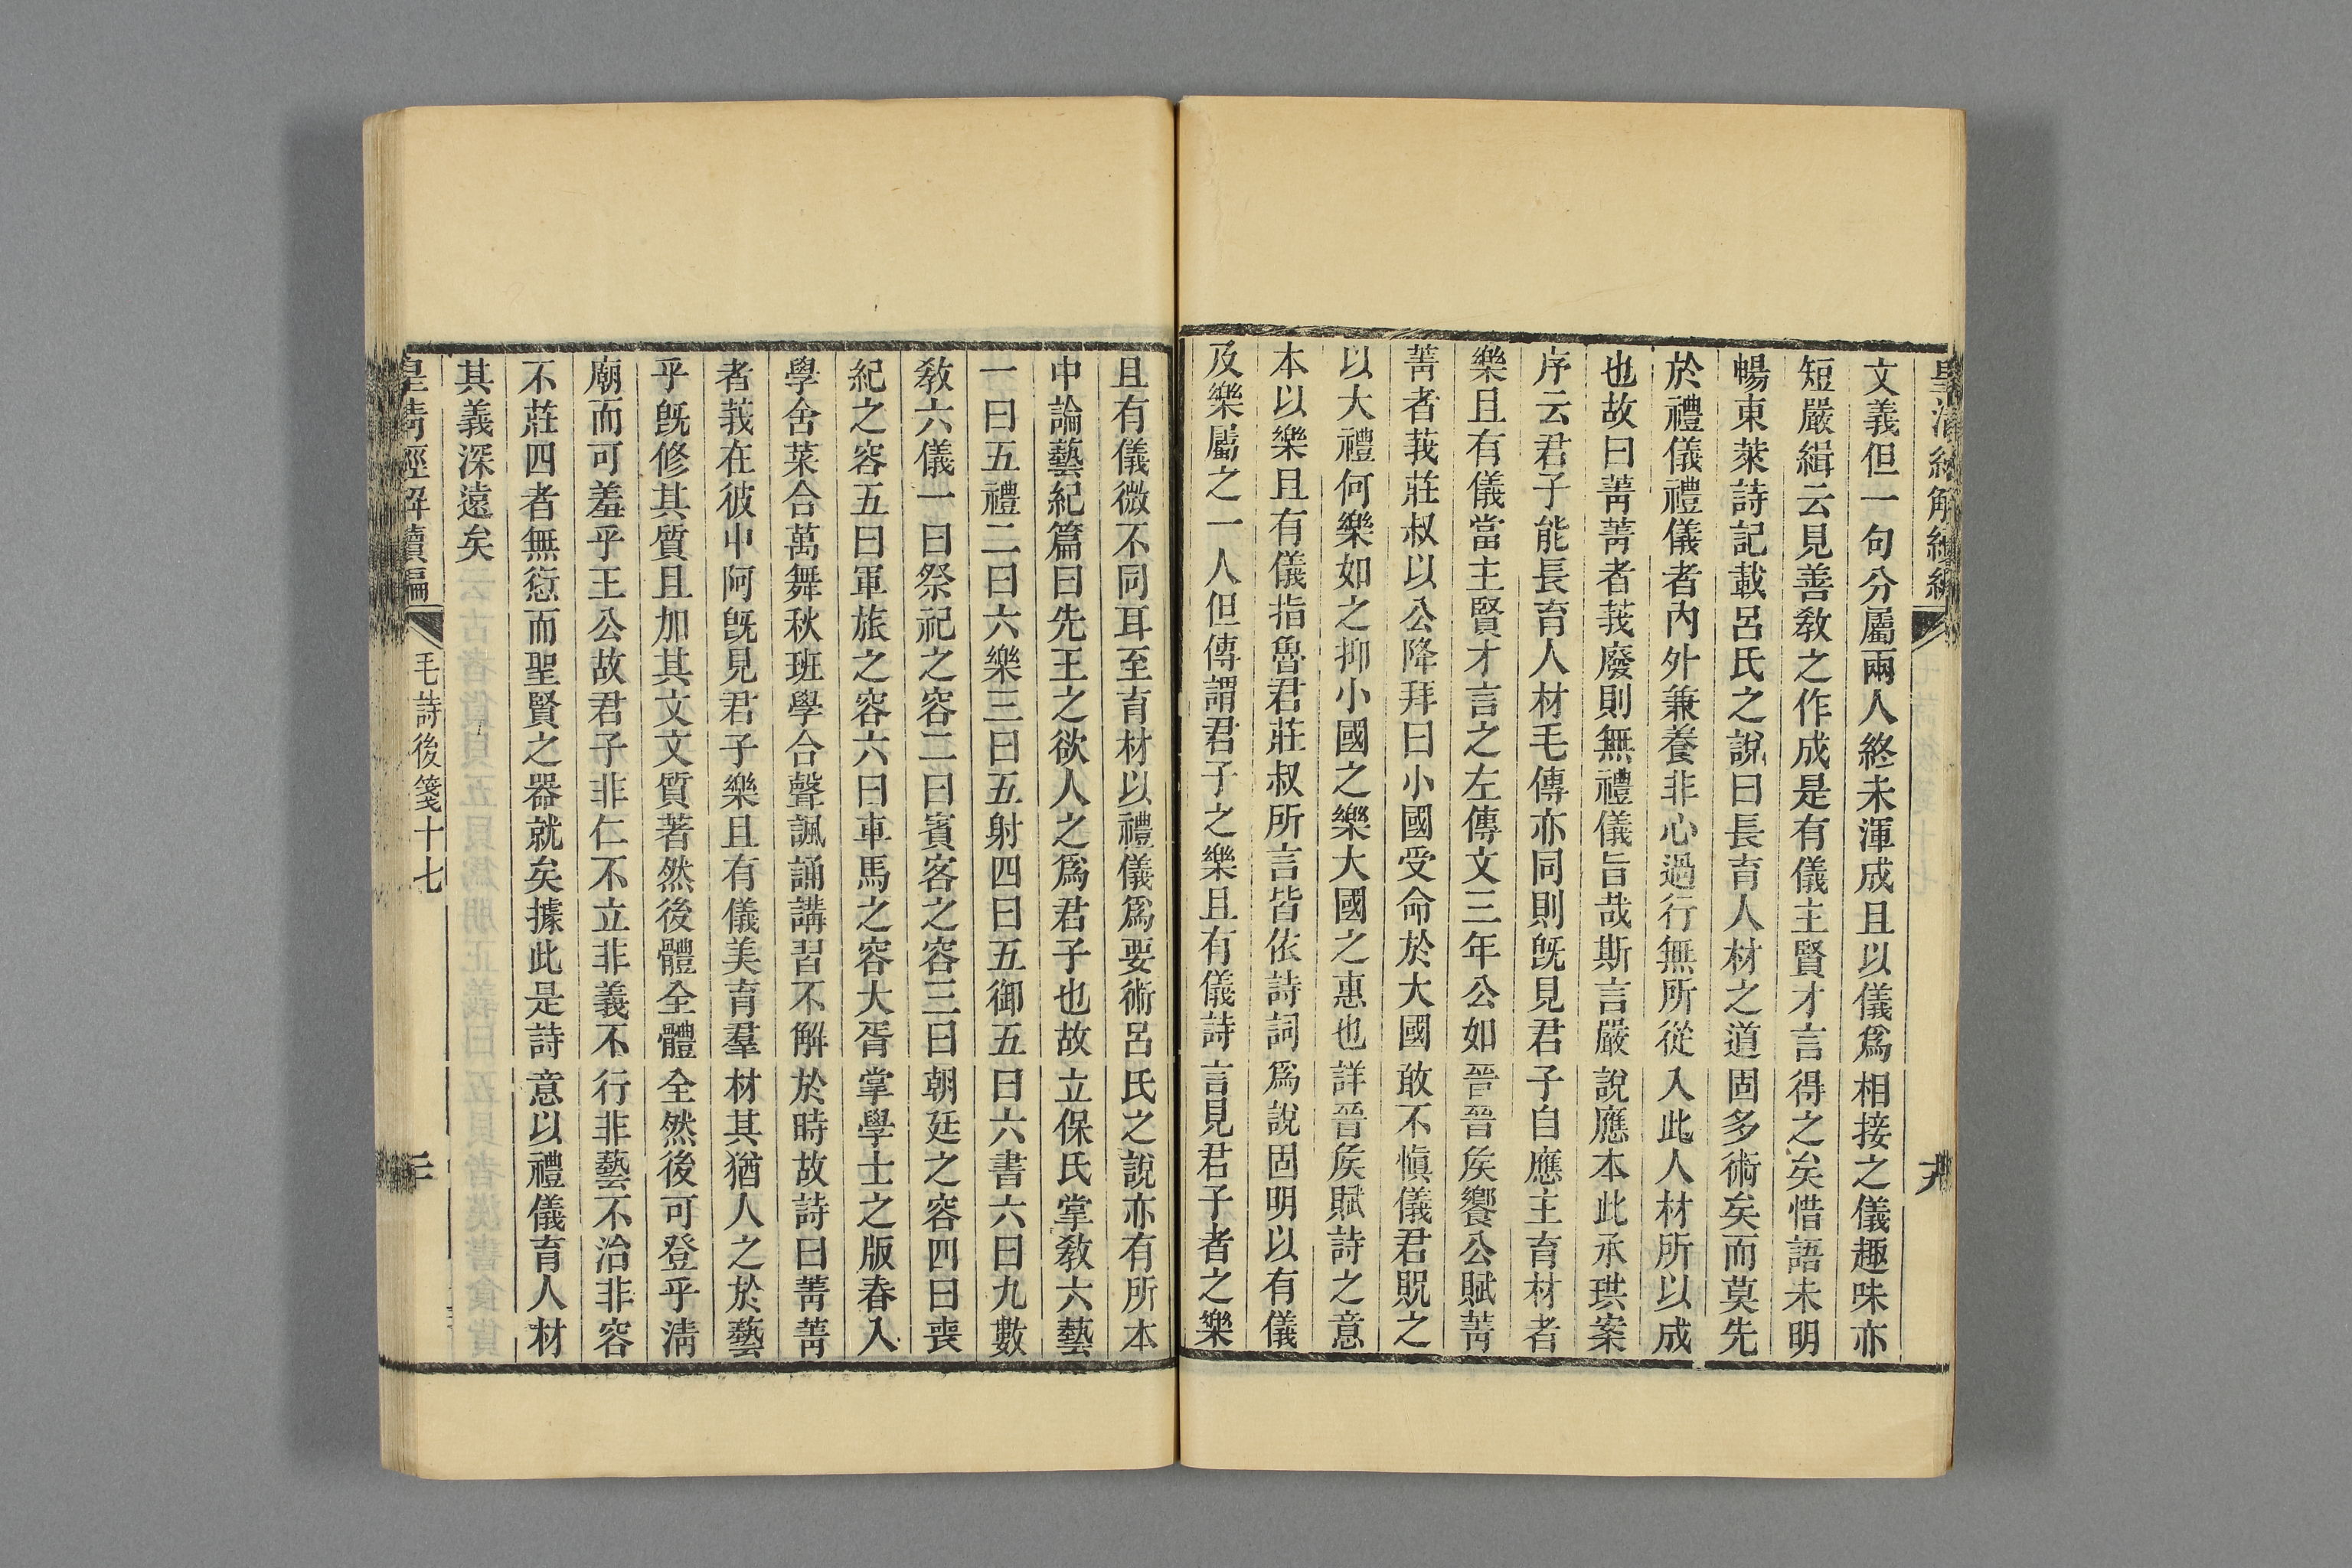 皇清經解續編
文義但一句分屬兩人終未渾成且以儀爲相接之儀趣味亦
短嚴緝云見善敎之作成是有儀主賢才言得之矣惜語未明
暢東萊詩記載呂氏之說曰長育人材之道固多術矣而莫先
於禮儀禮儀者內外兼養非心過行無所從入此人材所以成
也故曰菁菁者莪廢則無禮儀旨哉斯言嚴說應本此承珙案
序云君子能長育人材毛傳亦同則旣見君子自應主育材者
樂且有儀當主賢才言之左傳文三年公如晉晉矦饗公賦菁
菁者莪莊叔以公降拜曰小國受命於大國敢不愼儀君貺之
以大禮何樂如之抑小國之樂大國之惠也詳晉矦賦詩之意
本以樂且有儀指魯君莊叔所言皆依詩詞爲說固明以有儀
及樂屬之一人但傳謂君子之樂且有儀詩言見君子者之樂
且有儀微不同耳至育材以禮儀爲要術呂氏之說亦有所本
中論藝紀篇曰先王之欲人之爲君子也故立保氏掌敎六藝
一曰五禮二曰六樂三曰五射四曰五御五曰六書六曰九數
敎六儀一曰祭祀之容二曰賓客之容三曰朝廷之容四曰喪
紀之容五曰軍旅之容六曰車馬之容大胥掌學士之版春入
學舍菜合萬舞秋班學合聲諷誦講習不解於時故詩曰菁菁
者莪在彼中阿旣見君子樂且有儀美育羣材其猶人之於藝
乎旣修其質且加其文文質著然後體全體全然後可登乎淸
廟而可羞乎王公故君子非仁不立非義不行非藝不治非容
不莊四者無愆而聖賢之器就矣據此是詩意以禮儀育人材
其義深遠矣
皇清經解續編
毛詩後箋十七